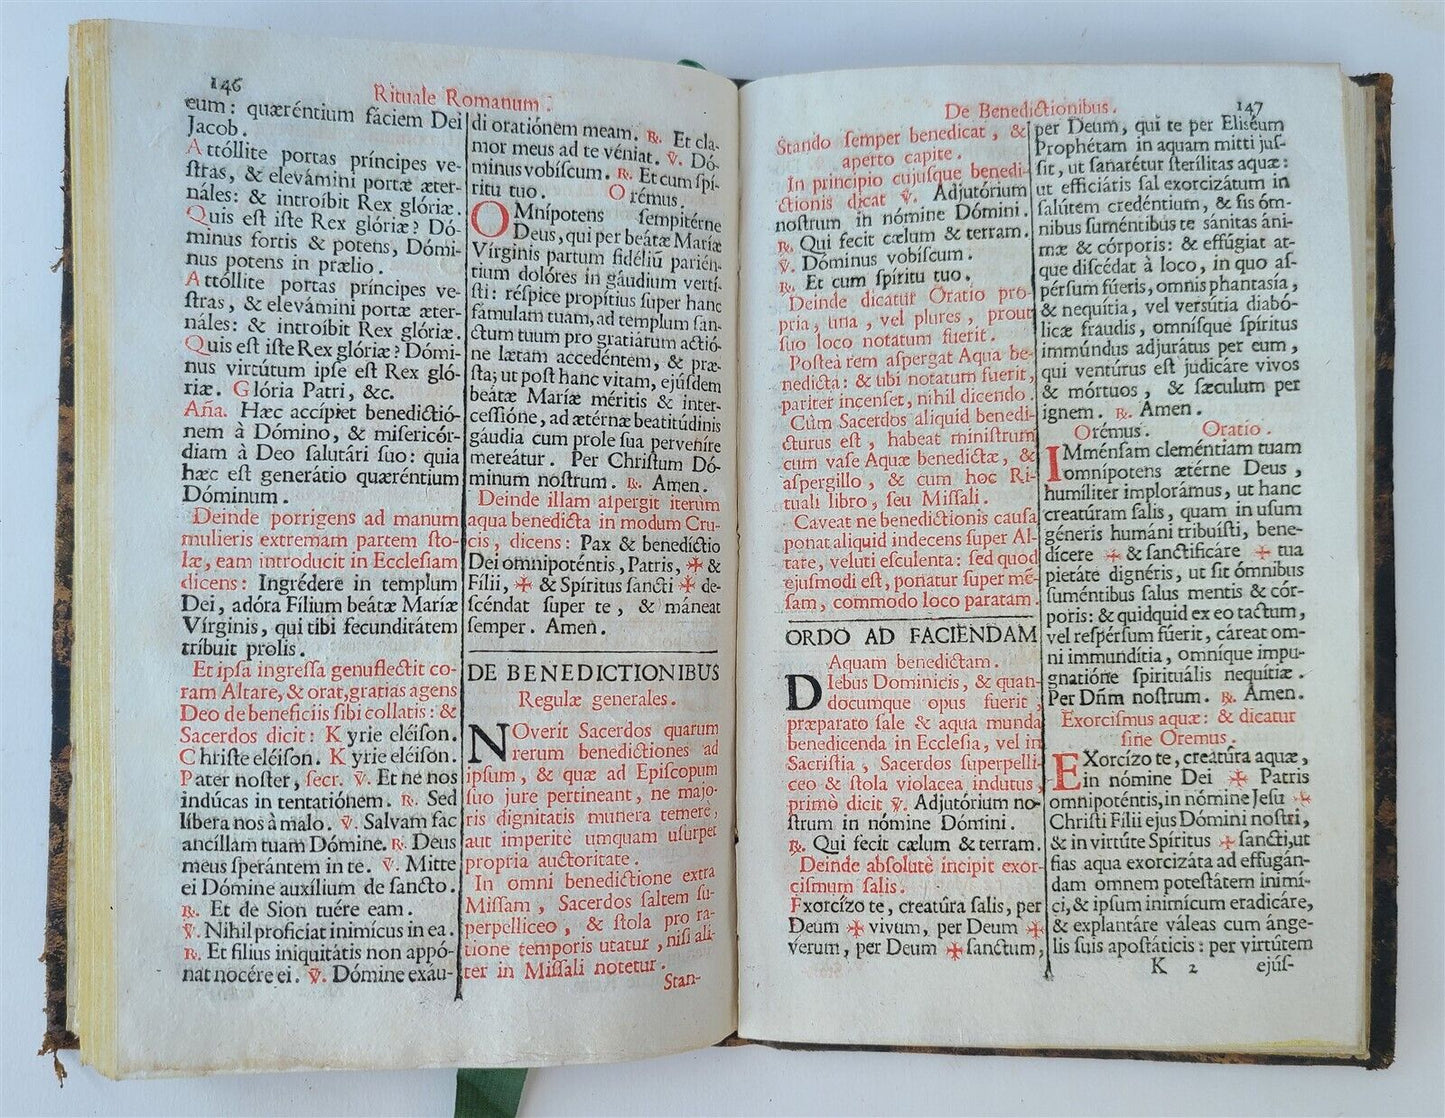 146
Rituale Romanum.
eum: quæréntium fáciem Dei
Jacob.
Attóllite portas príncipes ve-
ſtras, & elevámini portæ æter-
náles: & introíbit Rex glóriæ.
Quis eſt iſte Rex glóriæ? Dó-
minus fortis & potens, Dómi-
nus potens in prælio.
Attóllite portas príncipes ve-
ſtras, & elevámini portæ æter-
náles: & introíbit Rex glóriæ.
Quis eſt iſte Rex glóriæ? Dómi-
nus virtútum ipſe eſt Rex gló-
riæ. Glória Patri, &c.
Aña. Hæc accípiet benedictió-
nem à Dómino, & miſericór-
diam à Deo ſalutári ſuo: quia
hæc eſt generátio quæréntium
Dóminum.
Deinde porrigens ad manum
mulieris extremam partem ſto-
læ, eam introducit in Eccleſiam
dicens: Ingrédere in templum
Dei, adóra Fílium beátæ Maríæ
Vírginis, qui tibi fecunditátem
tríbuit prolis.
Et ipſa ingreſſa genuflectit co-
ram Altare, & orat, gratias agens
Deo de beneficiis ſibi collatis: &
Sacerdos dicit: Kyrie eléiſon.
Chriſte eléiſon. Kyrie eléiſon.
Pater noſter, ſecr. ℣. Et ne nos
indúcas in tentatiónem. ℟. Sed
líbera nos à malo. ℣. Salvam fac
ancíllam tuam Dómine. ℟. Deus
meus ſperántem in te. ℣. Mitte
ei Dómine auxílium de ſancto.
℟. Et de Sion tuére eam.
℣. Nihil profíciat inimícus in ea.
℟. Et fílius iniquitátis non appó-
nat nocére ei. ℣. Dómine exáu-
di oratiónem meam. ℟. Et cla-
mor meus ad te véniat. ℣. Dó-
minus vobíſcum. ℟. Et cum ſpí-
ritu tuo. Orémus.
OMnípotens ſempitérne
Deus, qui per beátæ Maríæ
Vírginis partum fidéliũ parién-
tium dolóres in gáudium vertí-
ſti: réſpice propítius ſuper hanc
fámulam tuam, ad templum ſan-
ctum tuum pro gratiárum actió-
ne lætam accedéntem, & præ-
ſta; ut poſt hanc vitam, ejúſdem
beátæ Maríæ méritis & inter-
ceſſióne, ad ætérnæ beatitúdinis
gáudia cum prole ſua perveníre
mereátur. Per Chriſtum Dó-
minum noſtrum. ℟. Amen.
Deinde illam aſpergit iterum
aqua benedicta in modum Cru-
cis, dicens: Pax & benedíctio
Dei omnipoténtis, Patris, ✠ &
Fílii, ✠ & Spíritus ſancti ✠ de-
ſcéndat ſuper te, & máneat
ſemper. Amen.
DE BENEDICTIONIBUS
Regulæ generales.
NOverit Sacerdos quarum
rerum benedictiones ad
ipſum, & quæ ad Epiſcopum
ſuo jure pertineant, ne majo-
ris dignitatis munera temerè,
aut imperitè umquam uſurpet
propria auctoritate.
In omni benedictione extra
Miſſam, Sacerdos ſaltem ſu-
perpelliceo, & ſtola pro ra-
tione temporis utatur, niſi ali-
ter in Miſſali notetur.
Stan-
De Benedictionibus.
147
Stando ſemper benedicat, &
aperto capite.
In principio cujuſque benedi-
ctionis dicat ℣. Adjutórium
noſtrum in nómine Dómini.
℟. Qui fecit cælum & terram.
℣. Dóminus vobíſcum.
℟. Et cum ſpíritu tuo.
Deinde dicatur Oratio pro-
pria, una, vel plures, prout
ſuo loco notatum fuerit.
Poſteà rem aſpergat Aqua be-
nedicta: & ubi notatum fuerit,
pariter incenſet, nihil dicendo.
Cùm Sacerdos aliquid benedi-
cturus eſt, habeat miniſtrum
cum vaſe Aquæ benedictæ, &
aſpergillo, & cum hoc Ri-
tuali libro, ſeu Miſſali.
Caveat ne benedictionis cauſa
ponat aliquid indecens ſuper Al-
tare, veluti eſculenta: ſed quod
ejuſmodi eſt, ponatur ſuper mẽ-
ſam, commodo loco paratam.
ORDO AD FACIENDAM
Aquam benedictam.
DIebus Dominicis, & quan-
documque opus fuerit,
præparato ſale & aqua munda
benedicenda in Eccleſia, vel in
Sacriſtia, Sacerdos ſuperpelli-
ceo & ſtola violacea indutus,
primò dicit ℣. Adjutórium no-
ſtrum in nómine Dómini.
℟. Qui fecit cælum & terram.
Deinde abſolutè incipit exor-
ciſmum ſalis.
Exorcízo te, creatúra ſalis, per
Deum ✠ vivum, per Deum ✠
verum, per Deum ✠ ſanctum,
per Deum, qui te per Eliſéum
Prophétam in aquam mitti juſ-
ſit, ut ſanarétur ſterílitas aquæ:
ut efficiáris ſal exorcizátum in
ſalútem credéntium, & ſis óm-
nibus ſuméntibus te sánitas áni-
mæ & córporis: & effúgiat at-
que diſcédat à loco, in quo aſ-
pérſum fúeris, omnis phantaſía,
& nequítia, vel verſútia diabó-
licæ fraudis, omníſque ſpíritus
immúndus adjurátus per eum,
qui ventúrus eſt judicáre vivos
& mórtuos, & ſæculum per
ignem. ℟. Amen.
Orémus. Oratio.
IMménſam cleméntiam tuam
omnípotens ætérne Deus,
humíliter implorámus, ut hanc
creatúram ſalis, quam in uſum
géneris humáni tribuíſti, bene-
dícere ✠ & ſanctificáre ✠ tua
pietáte dignéris, ut ſit ómnibus
ſuméntibus ſalus mentis & cór-
poris: & quidquid ex eo tactum,
vel reſpérſum fúerit, cáreat om-
ni immundítia, omníque impu-
gnatióne ſpirituális nequítiæ.
Per Dñm noſtrum. ℟. Amen.
Exorciſmus aquæ: & dicatur
ſine Oremus.
EXorcízo te, creatúra aquæ,
in nómine Dei ✠ Patris
omnipoténtis, in nómine Jeſu ✠
Chriſti Fílii ejus Dómini noſtri,
& in virtúte Spíritus ✠ ſancti, ut
fias aqua exorcizáta ad effugán-
dam omnem poteſtátem inimí-
ci, & ipſum inimícum eradicáre,
& explantáre váleas cum ánge-
lis ſuis apoſtáticis: per virtútem
K 2
ejúſ-